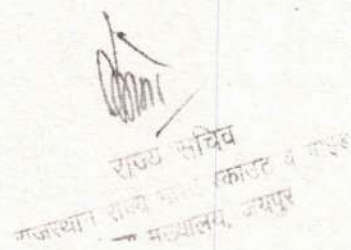 राज्य सचिव
राजस्थान राज्य भारत स्काउट व गाइड
मुख्यालय, जयपुर